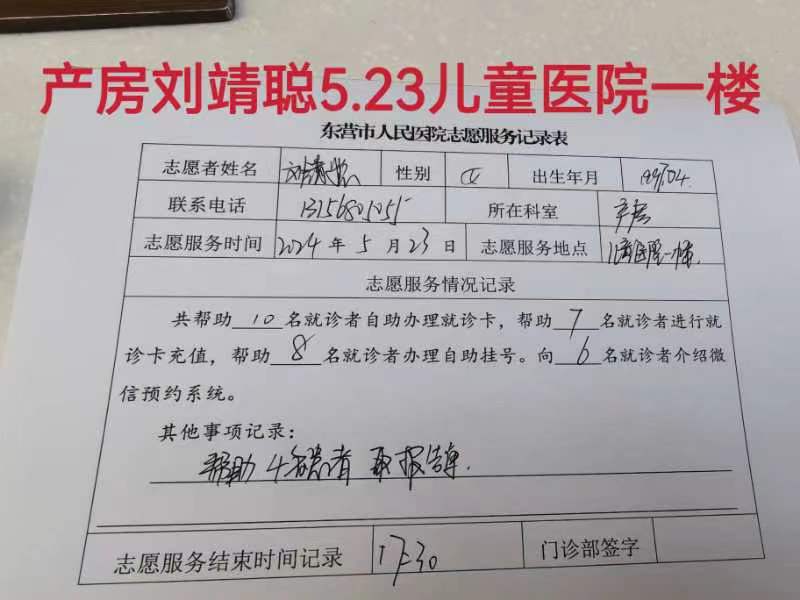 产房刘靖聪5.23儿童医院一楼
东营市人民医院志愿服务记录表
志愿者姓名 刘靖聪 性别 女 出生年月
联系电话 所在科室 产房
志愿服务时间 2024年5月23日 志愿服务地点 儿童医院一楼
志愿服务情况记录
共帮助10名就诊者自助办理就诊卡，帮助7名就诊者进行就
诊卡充值，帮助8名就诊者办理自助挂号。向6名就诊者介绍微
信预约系统。
其他事项记录：
帮助4名患者取报告单.
志愿服务结束时间记录 17:30 门诊部签字